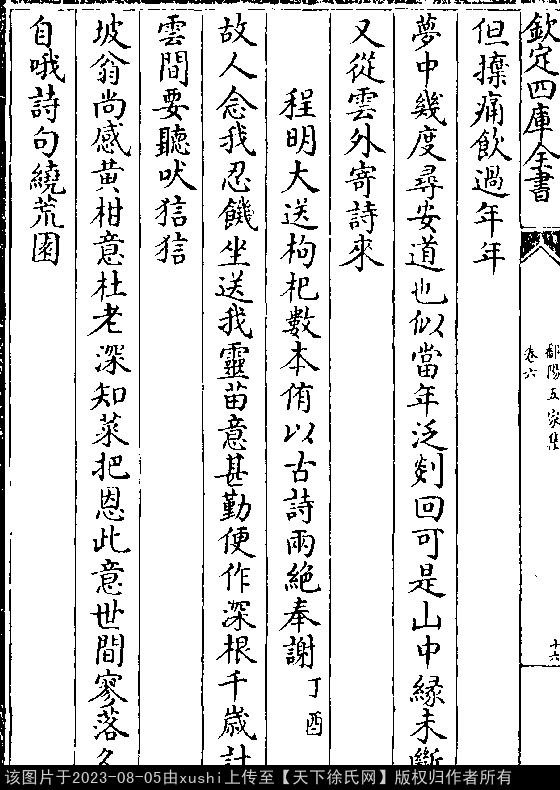 欽定四庫全書
鄱陽五家集
卷六
十六
但擽痛飲過年年
夢中幾度尋安道也似當年泛剡回可是山中緣未斷
又從雲外寄詩來
程明大送枸杞數本侑以古詩兩絶奉謝丁酉
故人念我忍饑坐送我靈苗意甚勤便作深根千歲計
雲間要聽吠狺狺
坡翁尚感黄柑意杜老深知菜把恩此意世間寥落久
自哦詩句繞荒園
该图片于2023-08-05由xushi上传至【天下徐氏网】版权归作者所有